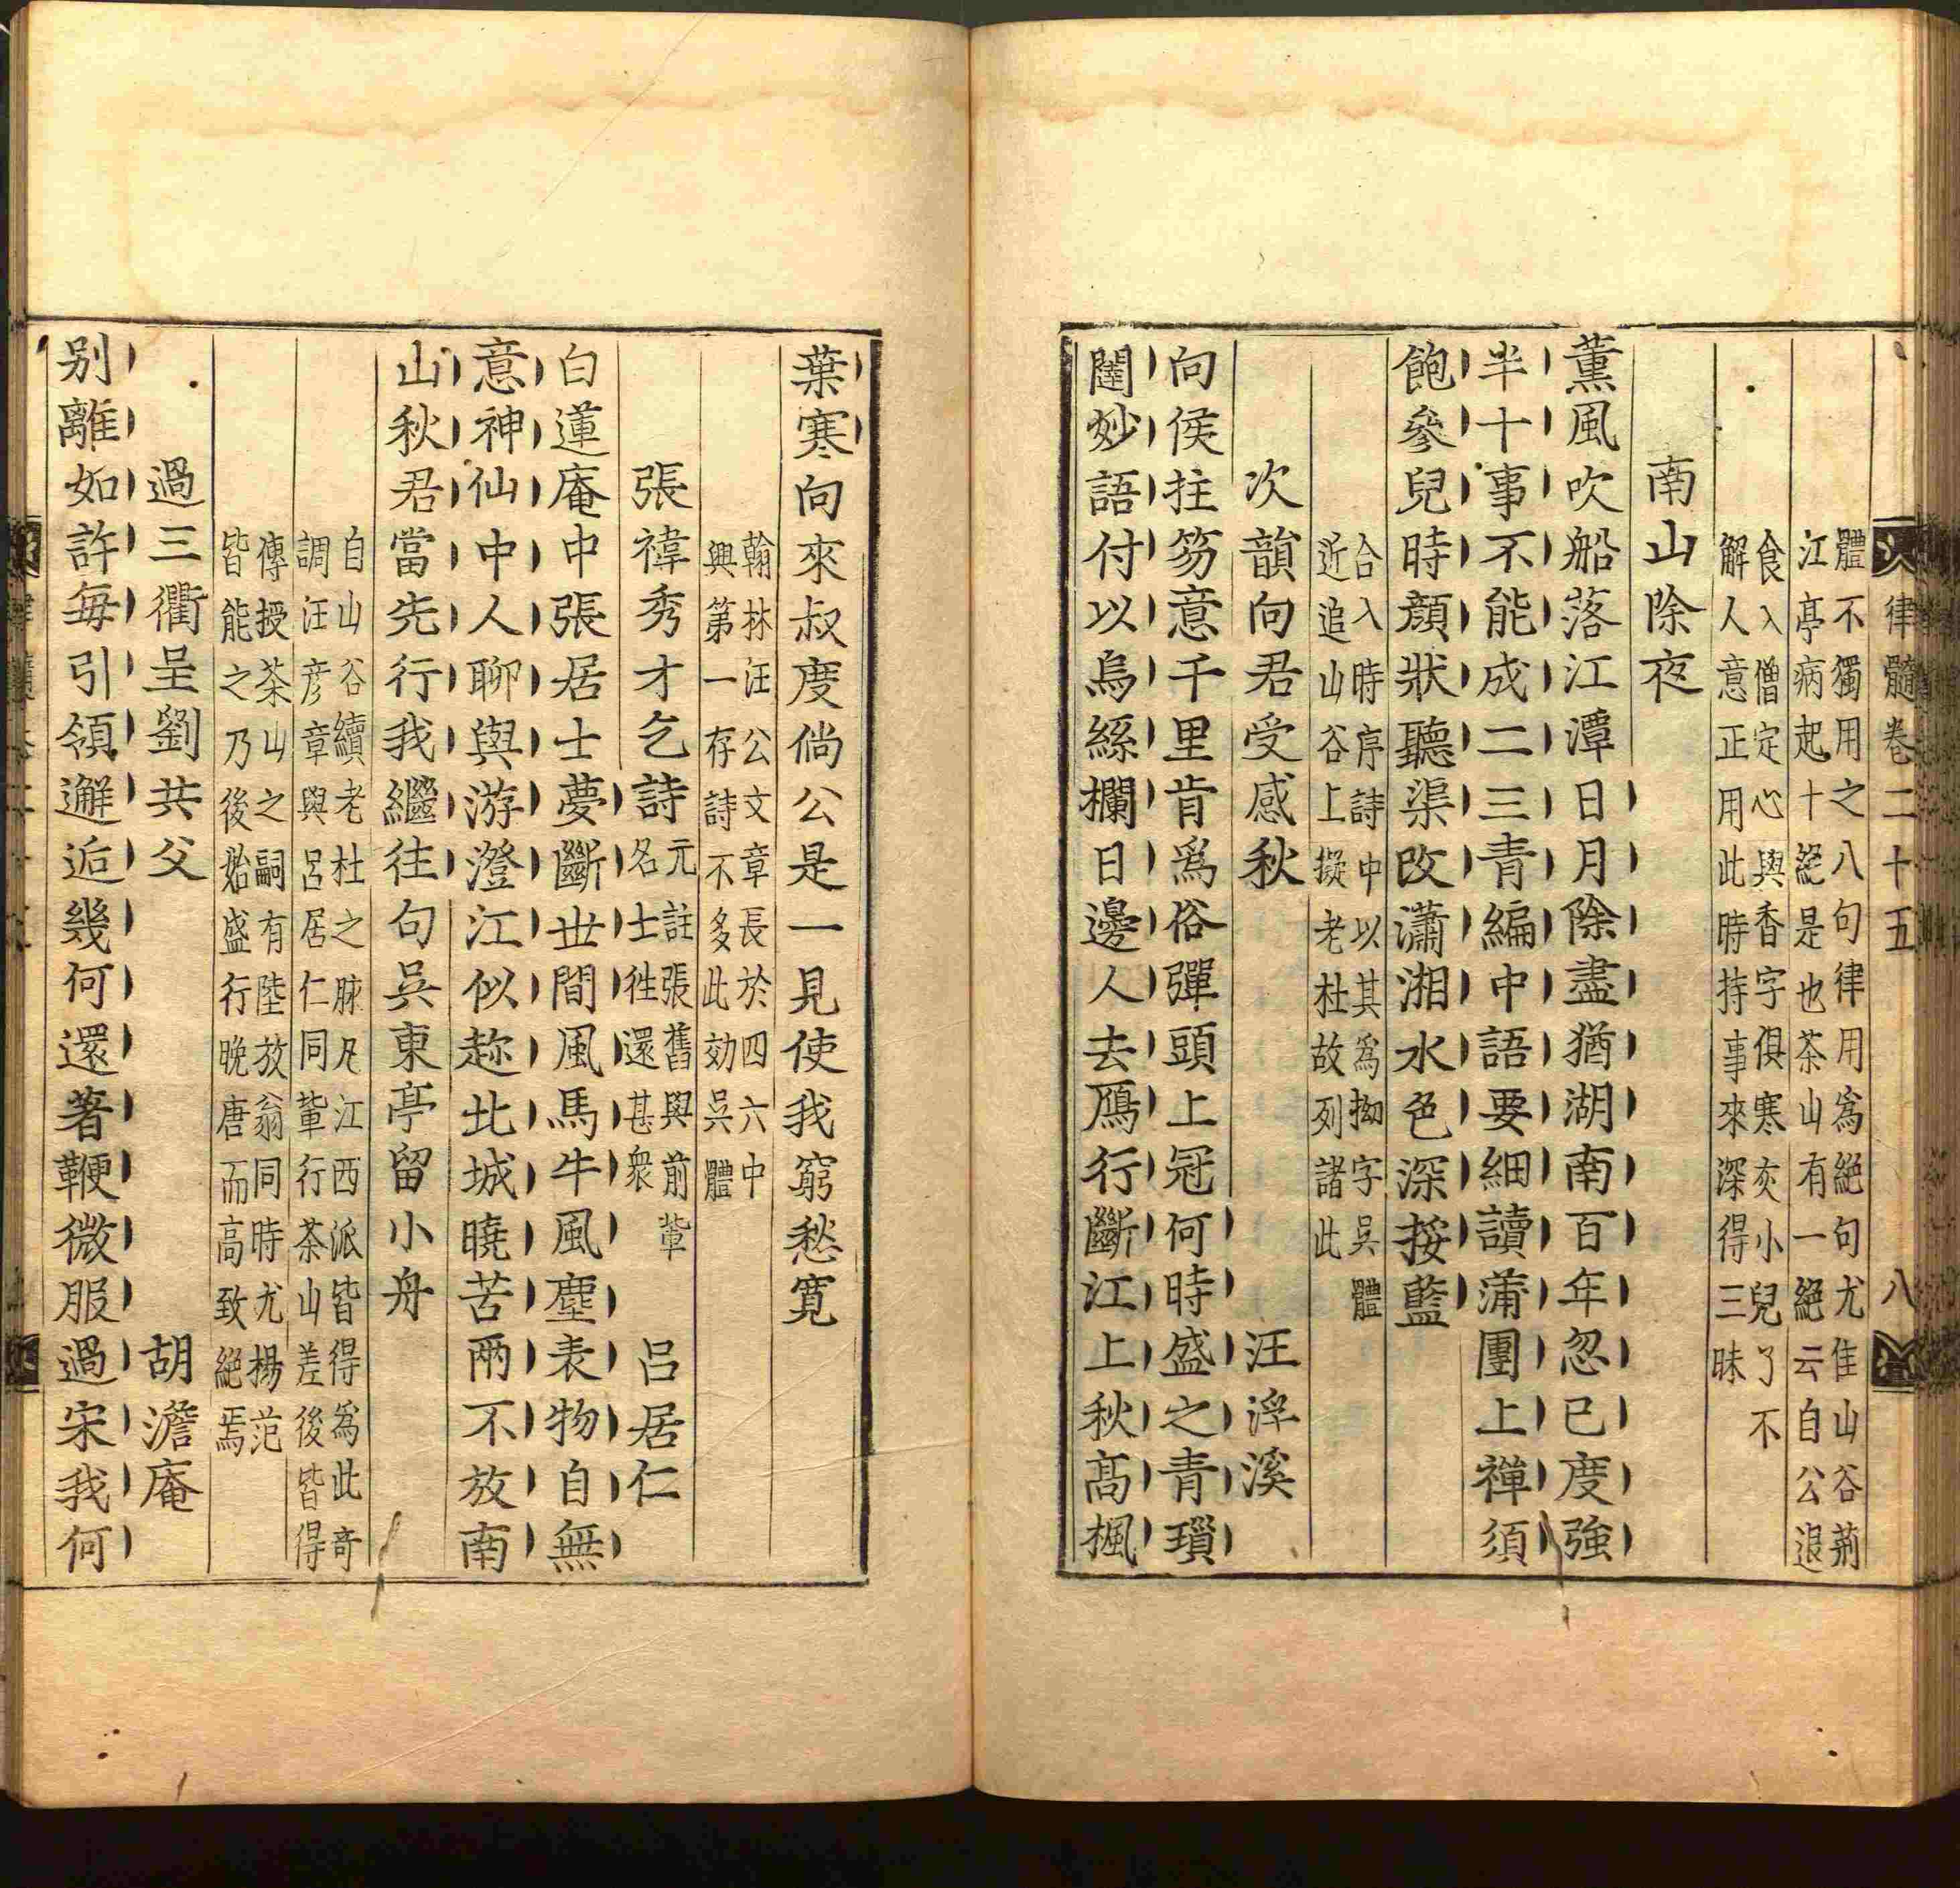 律髓卷二十五
八
體不獨用之八句律用爲絕句尤佳山谷荊
江亭病起十絕是也茶山有一絕云自公退
食入僧定心與香字俱寒灰小兒了不
解人意正用此時持事來深得三昧
南山除夜
薰風吹船落江潭日月除盡猶湖南百年忽已度強
半十事不能成二三青編中語要細讀蒲團上禪須
飽參兒時顏狀聽渠改瀟湘水色深挼藍
合入時序詩中以其爲拗字吳體
近追山谷上擬老杜故列諸此
次韻向君受感秋
汪浮溪
向侯拄笏意千里肯爲俗彈頭上冠何時盛之青瑣
闥妙語付以烏絲欄日邊人去鴈行斷江上秋高楓
葉寒向來叔度倘公是一見使我窮愁寬
翰林汪公文章長於四六中
興第一存詩不多此効吳體
張禕秀才乞詩
元註張舊與前輩
名士徃還甚衆
呂居仁
白蓮庵中張居士夢斷世間風馬牛風塵表物自無
意神仙中人聊與游澄江似趂北城曉苦雨不放南
山秋君當先行我繼往句吳東亭留小舟
自山谷續老杜之脉凡江西派皆得爲此奇
調汪彦章與呂居仁同輩行茶山差後皆得
傳授茶山之嗣有陸放翁同時尤楊范
皆能之乃後始盛行晚唐而高致絕焉
過三衢呈劉共父
胡澹庵
别離如許每引領邂逅幾何還著鞭微服過宋我何